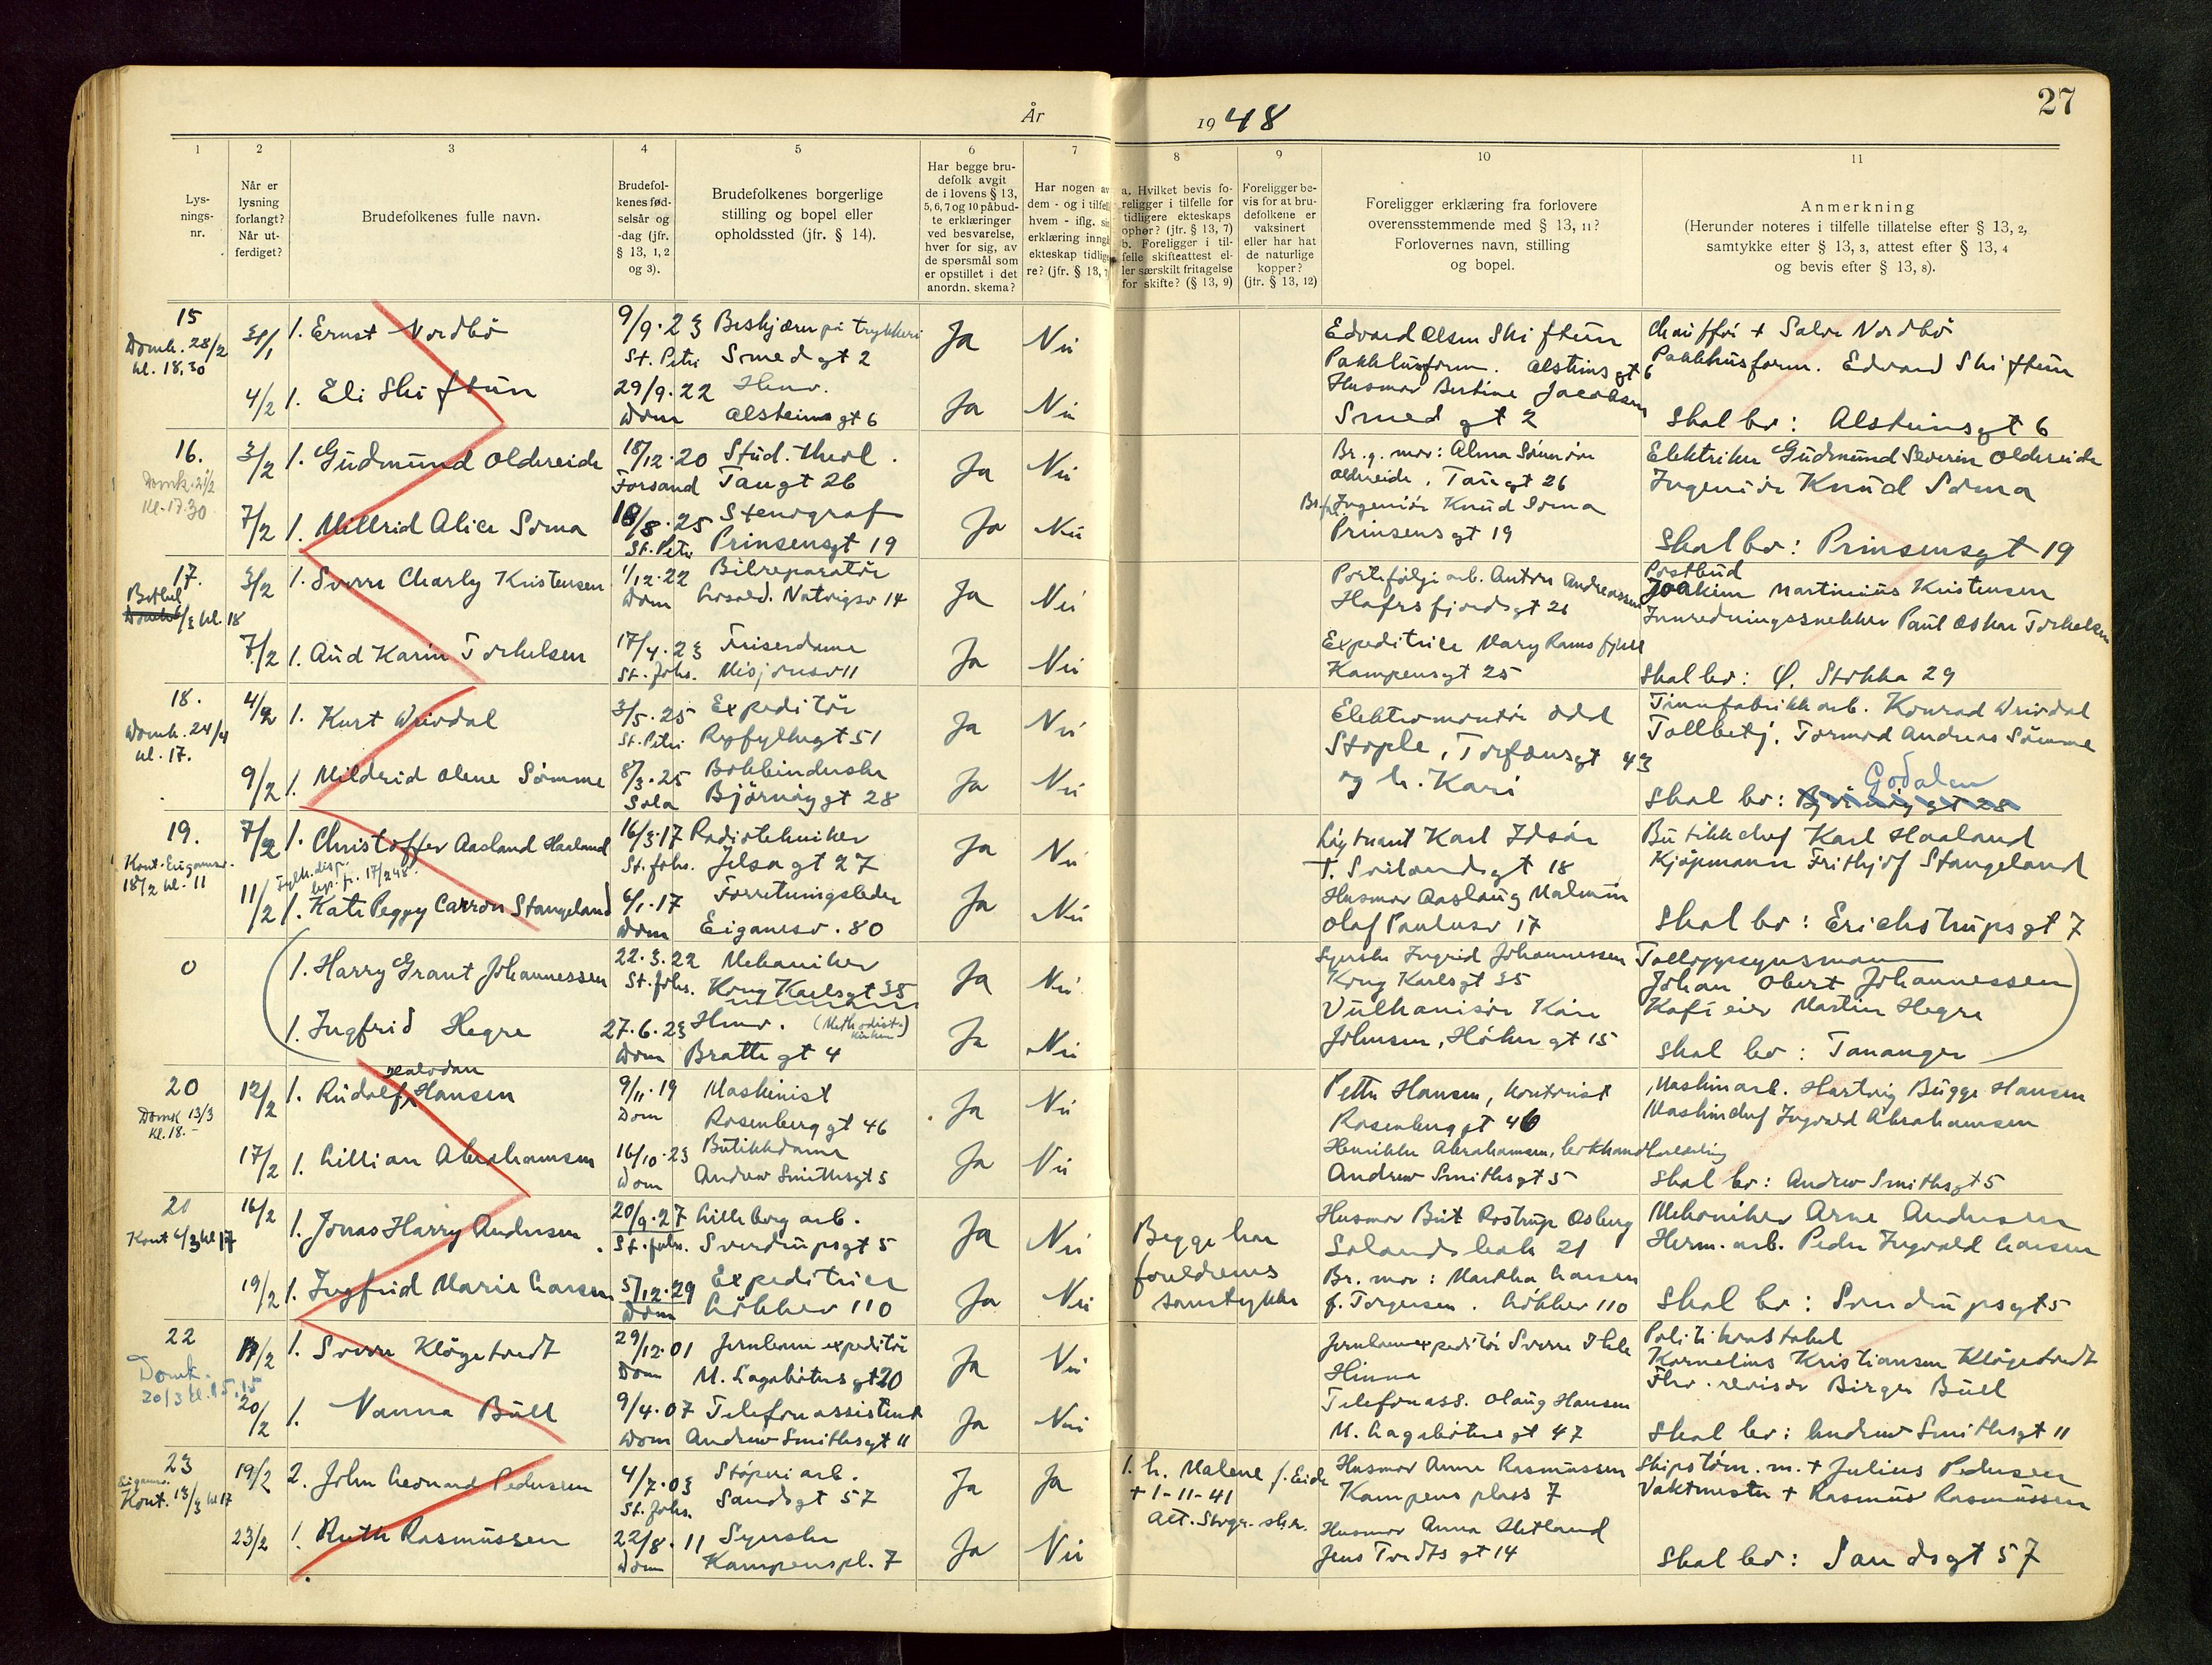 År
1948
27
1
2
3
4
5
6
7
8
9
10
11
Lys-
nings-
nr.
Når er
lysning
forlangt?
Når ut-
ferdiget?
Brudefolkenes fulle navn.
Brudefol-
kenes fød-
selsår og
-dag (jfr.
§ 13, 1, 2
og 3).
Brudefolkenes borgerlige
stilling og bopel eller
opholdssted (jfr. § 14).
Har begge bru-
defolk avgit
de i lovens § 13,
5, 6, 7 og 10 påbud-
te erklæringer
ved besvarelse,
hver for sig, av
de spørsmål som
er opstillet i det
anordn. skema?
Har nogen av
dem - og i tilfelle
hvem - iflg. sin
erklæring inngå
ekteskap tidlige-
re? (jfr. § 13, 7)
a. Hvilket bevis fo-
religger i tilfelle for
tidligere ekteskaps
ophør? (jfr. § 13, 7)
b. Foreligger i til-
felle skifteattest el-
ler særskilt fritagelse
for skifte? (§ 13, 9)
Foreligger be-
vis for at bru-
defolkene er
vaksinert
eller har hat
de naturlige
kopper?
(jfr. § 13, 12)
Foreligger erklæring fra forlovere
overensstemmende med § 13, 11?
Forlovernes navn, stilling
og bopel.
Anmerkning
(Herunder noteres i tilfelle tillatelse efter § 13, 2,
samtykke efter § 13, 3, attest efter § 13, 4
og bevis efter § 13, 8).
15
Domk. 28/2
kl. 18,30
31/1
1. Ernst Nordbö
9/9.23
St. Petri
Beskjærer på trykkeri
Smedgt 2
Ja
Nei
Edvard Olsen Skiftun
Pakkhusform. Alsteinsgt 6
Chauffør + Salve Nordbö
Pakkhusform. Edvard Skiftun
4/2
1. Eli Skiftun
29/9.22
Dom
Hmv.
Alsteinsgt 6
Ja
Nei
Husmor Bertine Jacobsen
Smedgt 2
Skal bo: Alsteinsgt 6
16.
Domk. 21/2
Kl. 17.30
3/2
1. Gudmund Oldereide
18/12.20
Forsand
Stud. theol.
Taugt 26
Ja
Nei
Br.g. mor: Alma
Oldereide, Taugt 26
Elektriker Gudmund Severin Oldereide
Ingeniör Knud Soma
7/2
1. Millrid Alice Soma
18/8.25
St. Petri
Stenograf
Prinsensgt 19
Ja
Nei
Br.f. Ingeniör Knud Soma
Prinsensgt 19
Skal bo: Prinsensgt 19
17.
Betel
Domk 6/3 kl. 18
3/2
1. Sverre Charly Kristensen
1/12.22
Dom
Bilreparatör
Natvigsv 14
Ja
Nei
Porteföljearb. Anton Andreassen
Hafrsfjordsgt 21
Postbud
Joakim Martinius Kristensen
Innredningssnekker Paul Oskar Torkelsen
7/2
1. Aud Karin Torkelsen
17/4.23
St. Johs.
Friserdame
Misjonsv 11
Ja
Nei
Expeditrice Mary Ramsfjell
Kampensgt 25
Skal bo: Ø. Stokka 29
18.
Domk. 24/4
kl. 17.
4/2
1. Kurt
3/5.25
St. Petri
Expeditör
Ryfylkegt 51
Ja
Nei
Elektromontör Odd
Stople, Torfæusgt 43
Tinnfabrikkarb. Konrad
Tollbetj. Tormod Andreas Sömme
9/2
1. Mildrid Olene Sömme
8/3.25
Sola
Bokbinderske
Björnöygt 28
Ja
Nei
og h. Kari
Godalen
Skal bo: Björnöygt 28
19.
Kont. Eiganesv.
18/2 kl. 11
7/2
1. Christoffer Aasland Haaland
16/3.17
St. Johs.
Radiotekniker
Jelsagt 27
Ja
Nei
Löytnant Karl Idsöe
T. Soelandsgt 18
Butikkchef Karl Haaland
Kjöpmann Frithjof Stangeland
11/2
Fylk. disp. 17/2 48.
1. Kate Peggy Carron Stangeland
6/1.17
Dom
Forretningsleder
Eiganesv. 80
Ja
Nei
Husmor Aaslaug Malmin
Olaf Paulusv 17
Skal bo: Erichstrupsgt 7
0
1. Harry Grant Johannessen
22.3.22
St. Johs.
Mekaniker
Kong Karlsgt 35
Ja
Nei
Syerske Ingrid Johannessen
Kong Karlsgt 35
Tolloppsynsmann
Johan Obert Johannessen
1. Ingfrid Hegre
27.6.23
Dom
Hmv. (Methodist-kirken)
Brattegt 4
Ja
Nei
Vulkanisör Kåre
Johnsen, Håkongt 15
Kaféeier Martin Hegre
Skal bo: Tananger
20
Domk 13/3
Kl. 18.-
12/2
1. Rudolf Hansen
9/11.19
Dom
Maskinist
Rosenberggt 46
Ja
Nei
Petter Hansen, kontorist
Rosenberggt 46
Maskinarb. Hartvig Bugge Hansen
Maskinchef Ingvald Abrahamsen
17/2
1. Lillian Abrahamsen
16/10.23
Dom
Butikkdame
Andrew Smithsgt 5
Ja
Nei
Henrikke Abrahamsen, bokhandlerlærling
Andrew Smithsgt 5
Skal bo: Andrew Smithsgt 5
20
Kont 6/3 kl 17
16/2
1. Jonas Harry Andersen
20/9.27
St. Johs.
Lilleborg arb.
Sverdrupsgt 5
Ja
Nei
Begge har
foreldrenes
samtykke
Husmor Brit Rostrup Osberg
Solandsbak 21
Mekaniker Arne Andersen
Herm. arb. Peder Ingvald Larsen
19/2
1. Ingfrid Marie Larsen
5/12.29
Dom
Expeditrice
Lökkev 110
Ja
Nei
Br. mor: Martha Larsen
f. Torgersen. Lökkev 110
Skal bo: Sverdrupsgt 5
22
Domk.
20/3 kl. 15.15
18/2
1. Sverre Klögetvedt
29/12.01
Dom
Jernbaneexpeditör
M. Lagabötersgt 20
Ja
Nei
Jernbaneexpeditör Sverre Ihle
Hinna
Politikonstabel
Kornelius Kristiansen Klögetvedt
20/2
1. Nanna Bull
9/4.07
Dom
Telefonassistent
Andrew Smithsgt 11
Ja
Nei
Telefonass. Olaug Hansen
M. Lagabötersgt 47
Fhv. revisor Birger Bull
Skal bo: Andrew Smithsgt 11
23
Eiganes.
Kont. 13/3 kl 17
19/2
2. John Leonard Pedersen
4/7.03
St. Johs.
Stöperiarb.
Sandsgt 57
Ja
Ja
1. h. Malene f. Eide
+ 1-11-41
Att. Stvgr. sk.r.
Husmor Anne Rasmussen
Kampens plass 7
Skipstöm. m. + Julius Pedersen
Vaktmester + Rasmus Rasmussen
23/2
1. Ruth Rasmussen
22/8.11
Dom
Syerske
Kampenspl. 7
Ja
Nei
Husmor Anna Hetland
Jens Tvedts gt 14
Skal bo: Sandsgt 57